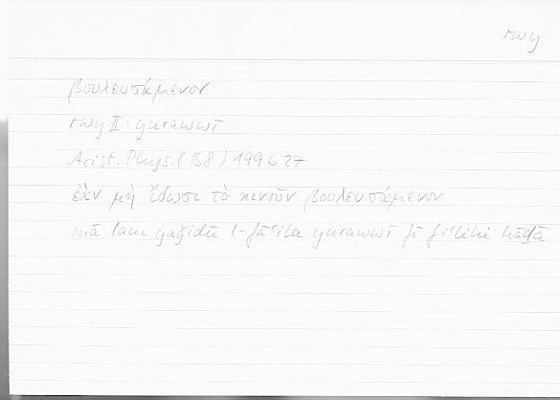 rwy
βουλευσάμενον
rwy II: yurawwī
Arist. Phys. (B8) 199b27
ἐὰν μὴ ἴδωσι τὸ κινοῦν βουλευσάμενον
mā lam yaǧidū l-fāʿila yurawwī fī fiʿlihi hāḏā